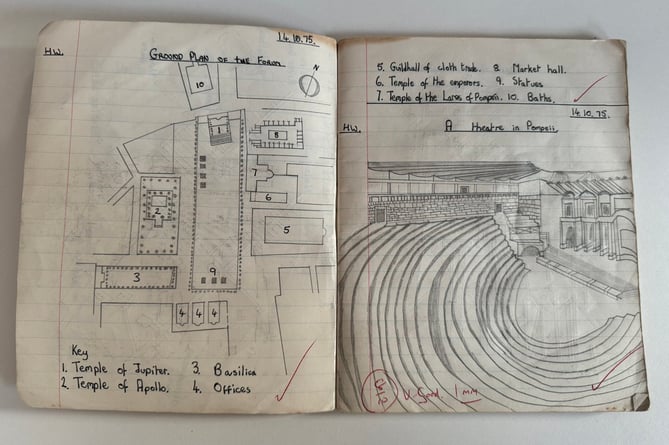 14.10.75.
H.W.
GROUND PLAN OF THE FORUM
N
10
1
8
7
2
6
5
3
9
4 4 4
Key
1. Temple of Jupiter. 3. Basilica
2. Temple of Apollo. 4. Offices
5. Guildhall of cloth trade. 8. Market hall.
6. Temple of the emperors. 9. Statues
7. Temple of the Lares of Pompeii. 10. Baths.
14.10.75.
H.W.
A theatre in Pompeii.
8/10 V. Good. 1 mm